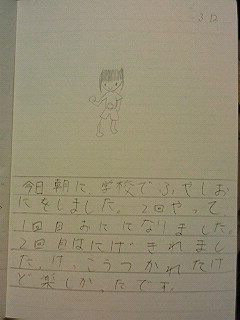 3日
今日朝に学校でふやしお
にをしました。2回やって
1回目おにになりました。
2回目はにげきれまし
た。け、こうつかれたけ
ど楽しか、たです。